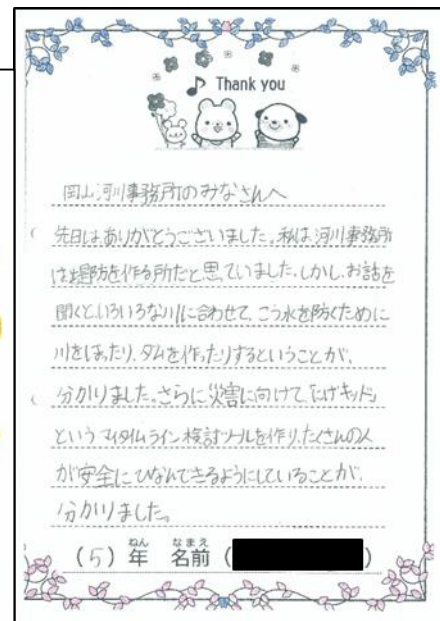 Thank you
岡山河川事務所のみなさんへ
先日はありがとうございました。私は、河川事務所
は堤防を作る所だと思っていました。しかし、お話を
聞くといろいろな川に合わせて、こう水を防ぐために
川をほったり、ダムを作ったりするということが、
分かりました。さらに災害に向けて「にげキッド」
というマイタイムライン検討ツールを作り、たくさんの人
が安全にひなんできるようにしていることが、
分かりました。
(5)年 名前( )
ねん なまえ